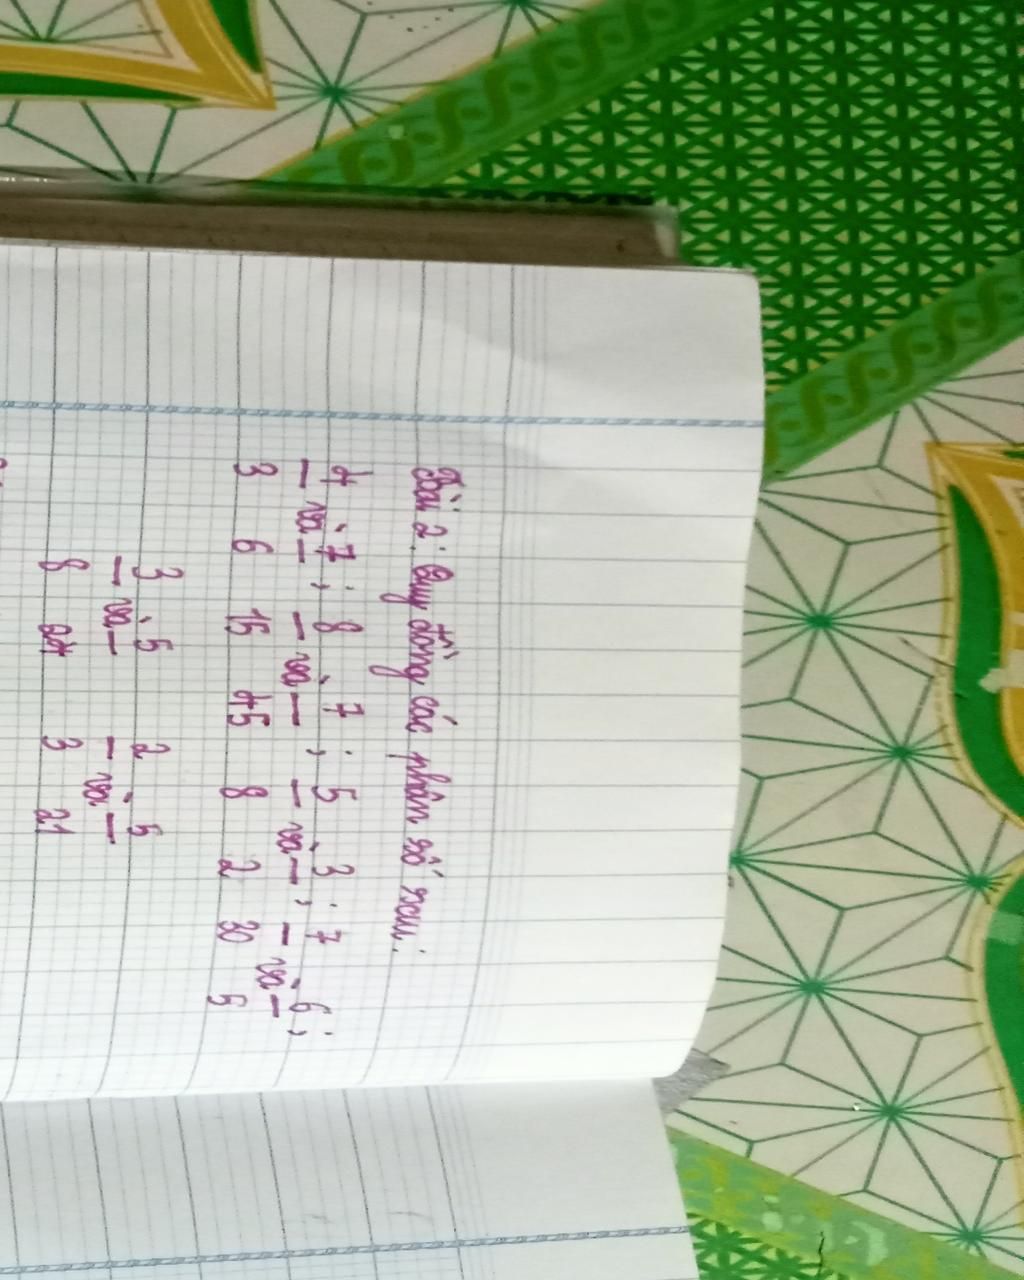 Bài 2: Quy đồng các phân số sau:
4/3 và 7/6; 8/15 và 7/45; 5/8 và 3/2; 7/20 và 6/5;
3/8 và 5/24 2/3 và 5/21